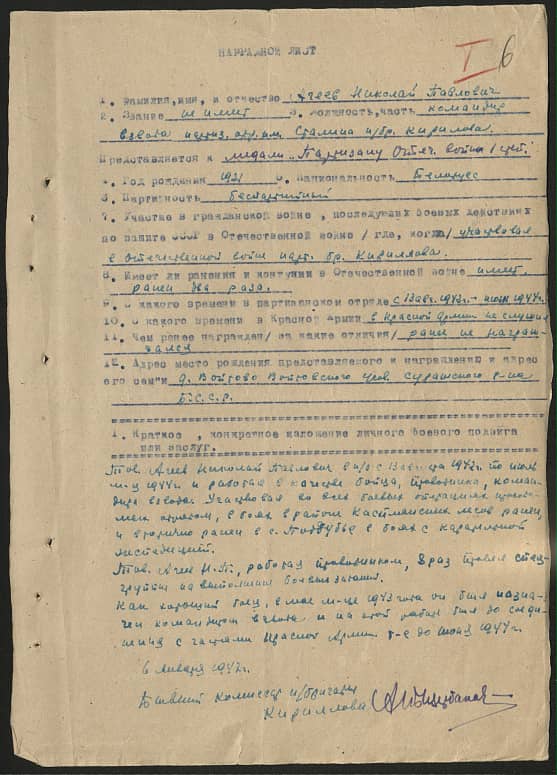 I 6
НАГРАДНОЙ ЛИСТ
1. Фамилия,имя, и отчество Агеев Николай Павлович
2. Звание не имеет 3. Должность,часть командир
взвода партиз. отр. им. Сталина п/бр. Кириллова.
Представляется к медали "Партизану Отеч. войны I ст."
4. Год рождения 1921 5. Национальность Белорус
6. Партийность Беспартийный
7. Участие в гражданской войне , последующих боевых действиях
по защите СССР в Отечественной войне / где, когда/ участвовал
в Отечественной войне парт. бр. Кириллова.
8. Имеет ли ранения и контузии в Отечественной войне имеет
ранен два раза.
9. С какого времени в партизанском отряде с 13 авг. 1942г. - июнь 1944г.
10. С какого времени в Красной армии в Красной Армии не служил
11. Чем ранее награжден/ за какие отличия/ ранее не награж-
дался
12. Адрес место рождения представляемого к награждению и адрес
его семьи д. Войтово Войтовского с/сов. Суражского р-на
Б.С.С.Р.
1. Краткое , конкретное изложение личного боевого подвига
или заслуг.
Тов. Агеев Николай Павлович в п/о с 13 августа 1942г. по июнь
м-ц 1944г и работал в качестве бойца, проводника, коман-
дира взвода. Участвовал во всех боевых операциях проводи-
мых отрядом, в боях в районе Касплянских лесов ранен,
и вторично ранен в с. в боях с карательной
экспедицией.
Тов. Агеев Н.П., работая проводником, 8 раз провел спец-
группы на выполнение боевых заданий.
Как хороший боец, в мае м-це 1943 года он был назна-
чен командиром взвода и на этой работе был до соеди-
нения с частями Красной Армии т-е до июня 1944г.
6 января 1947г.
Бывший комиссар п/бригады
Кириллова